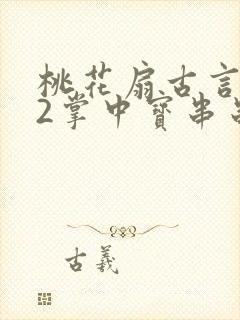 桃花扇古言
2掌中寳串
古羲